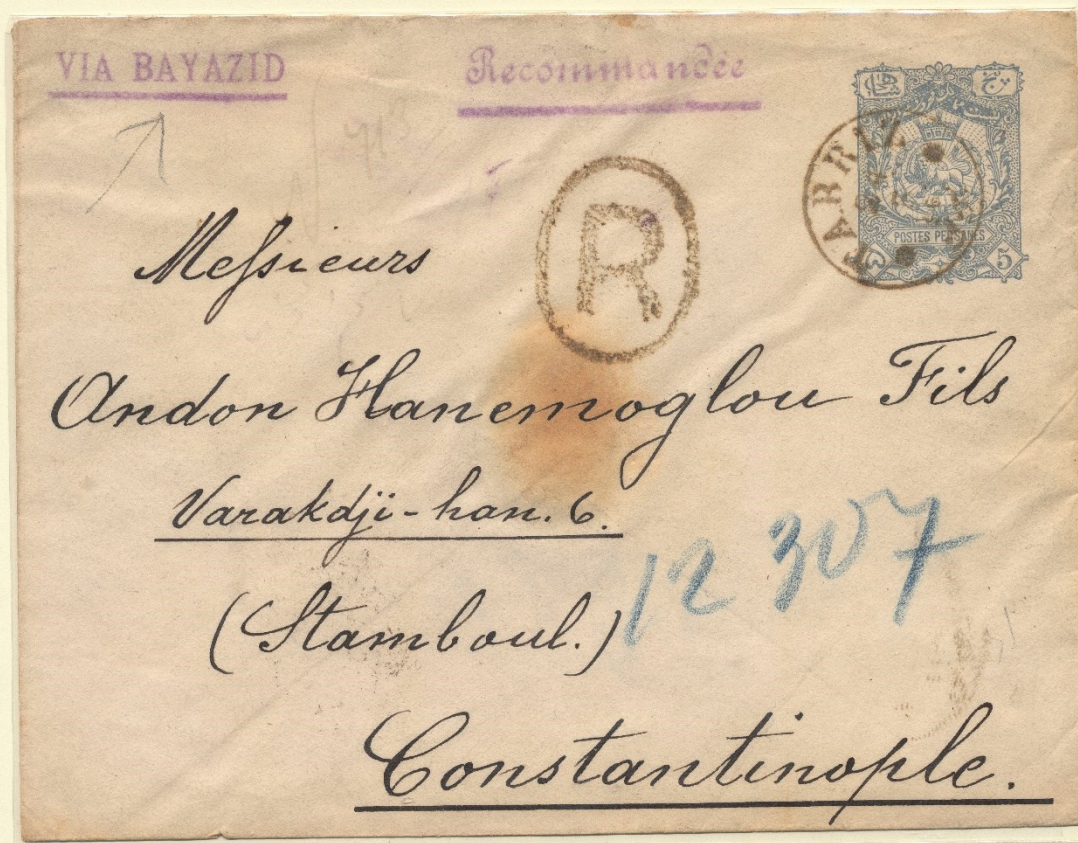 VIA BAYAZID
Recommandée
R
TABRIZ
POSTES PERSANES
5
Messieurs
Andon Hanemoglou Fils
Varakdji-han. 6.
(Stamboul.)
12 307
Constantinople.